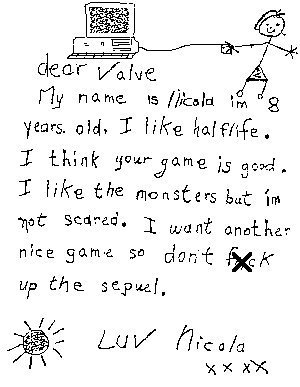 dear Valve
My name is Nicola im 8
years. old. I like halflife.
I think your game is good.
I like the monsters but im
not scared. I want another
nice game so dont fxck
up the sequel.
Luv Nicola
xxxx